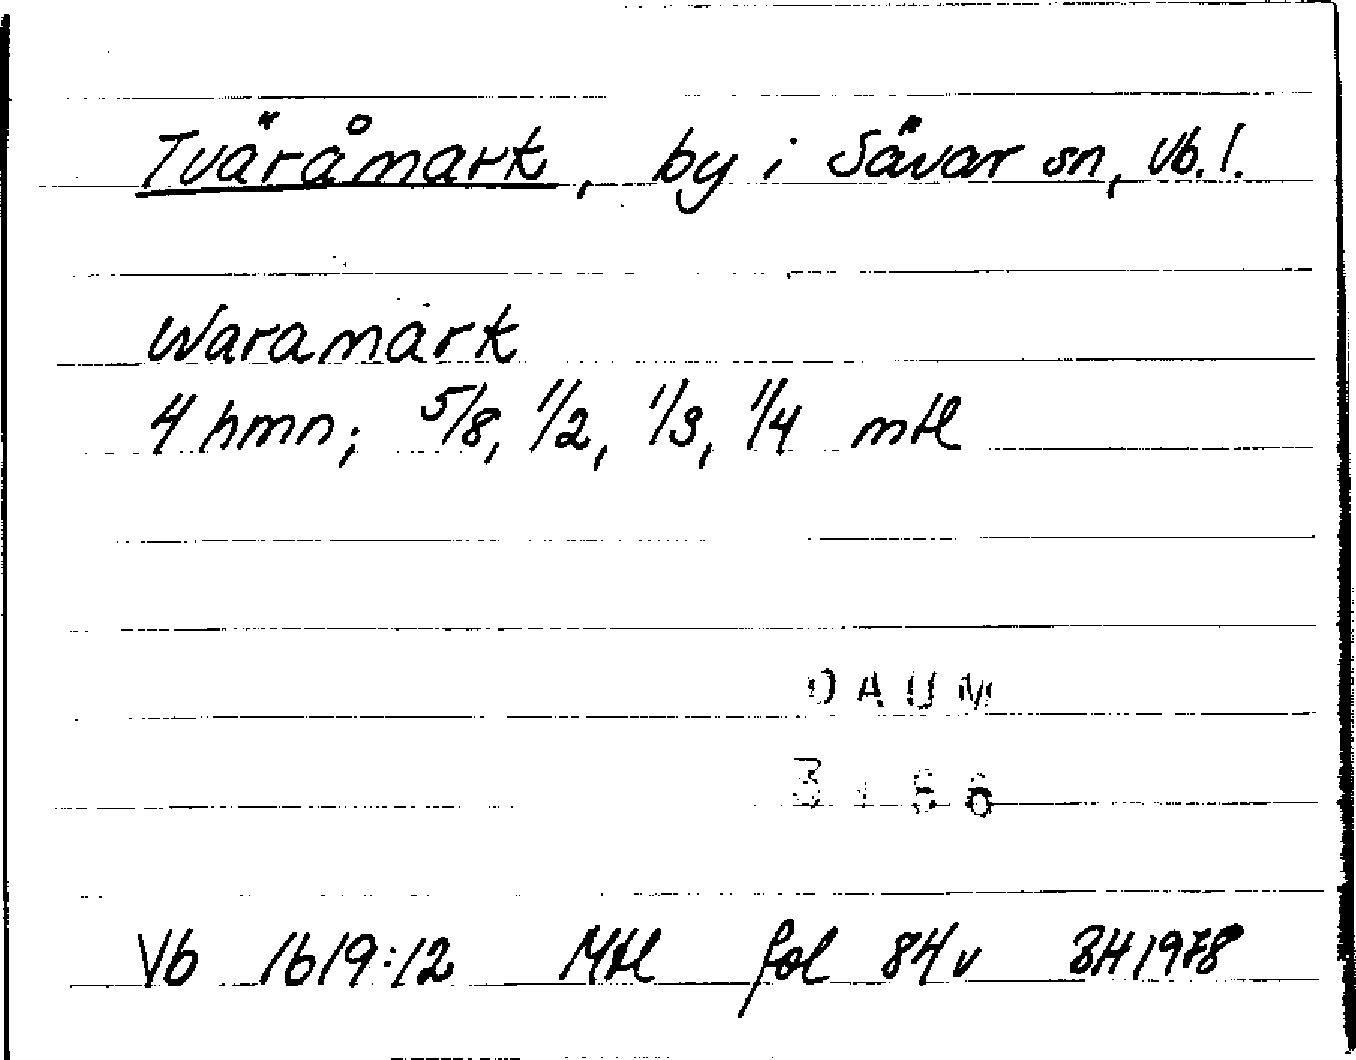 Tväråmark, by i Sävar sn, Vb. l.
Waramark
4 hmn; 5/8, 1/2, 1/3, 1/4 mtl
DAUM
Vb 1619:12 Mtl fol 84v BH 1978